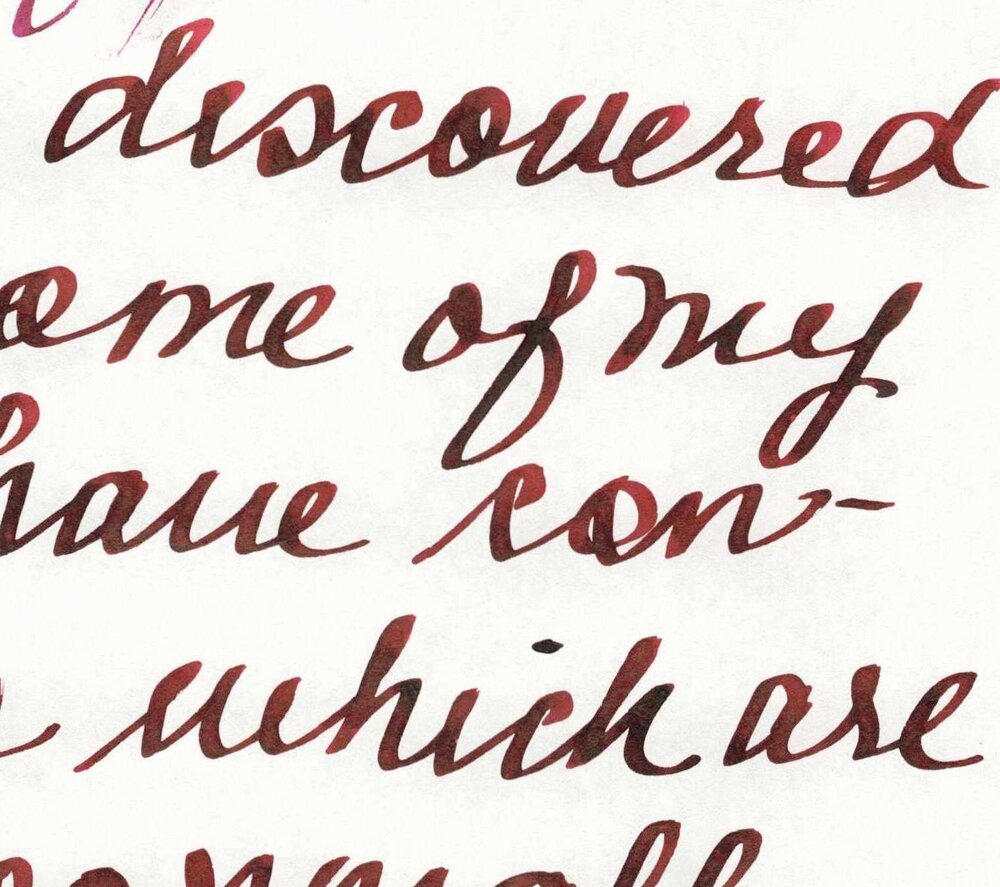 discovered
ome of my
have con-
which are